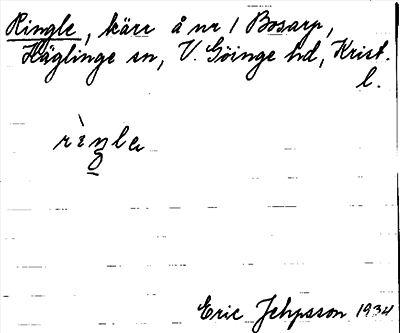 Ringle, kärr å nr 1 Bosarp,
Häglinge sn, V. Göinge hd, Krist.
l.
rìŋle
Eric Jehpsson 1934